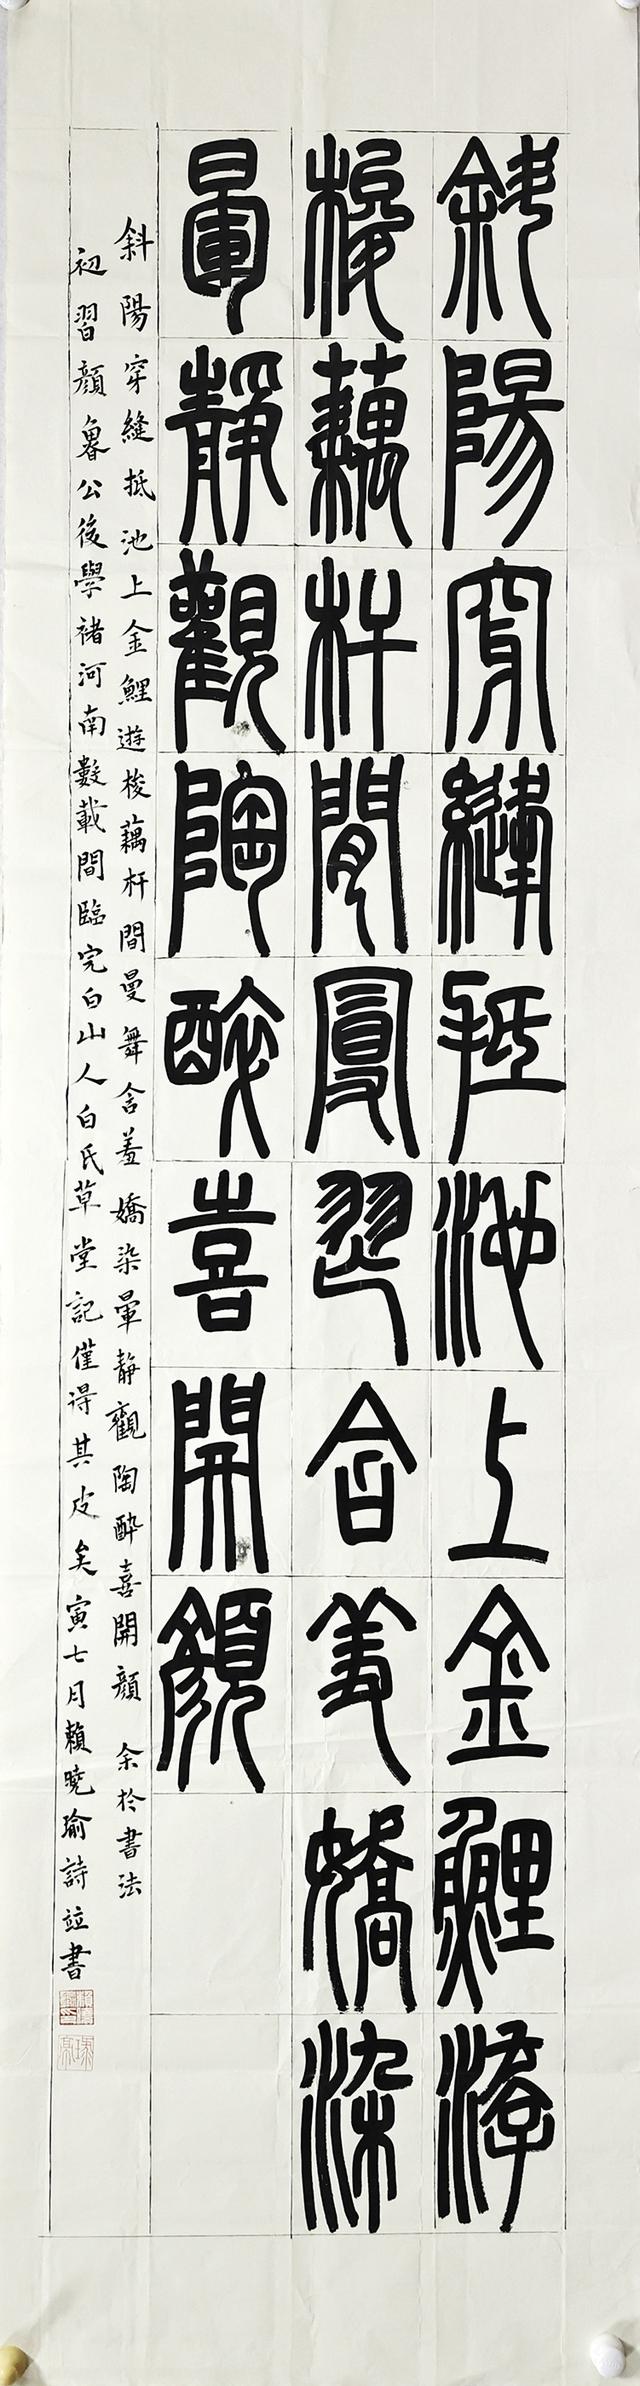 斜陽穿縫抵池上金鯉游
梭藕杆間曼舞含羞嬌染
暈靜觀陶醉喜開顏
斜陽穿縫抵池上金鯉遊梭藕杆間曼舞含羞嬌染暈靜觀陶醉喜開顏 余於書法
初習顏魯公後學褚河南數載間臨完白山人白氏草堂記僅得其皮矣寅七月賴曉瑜詩竝書